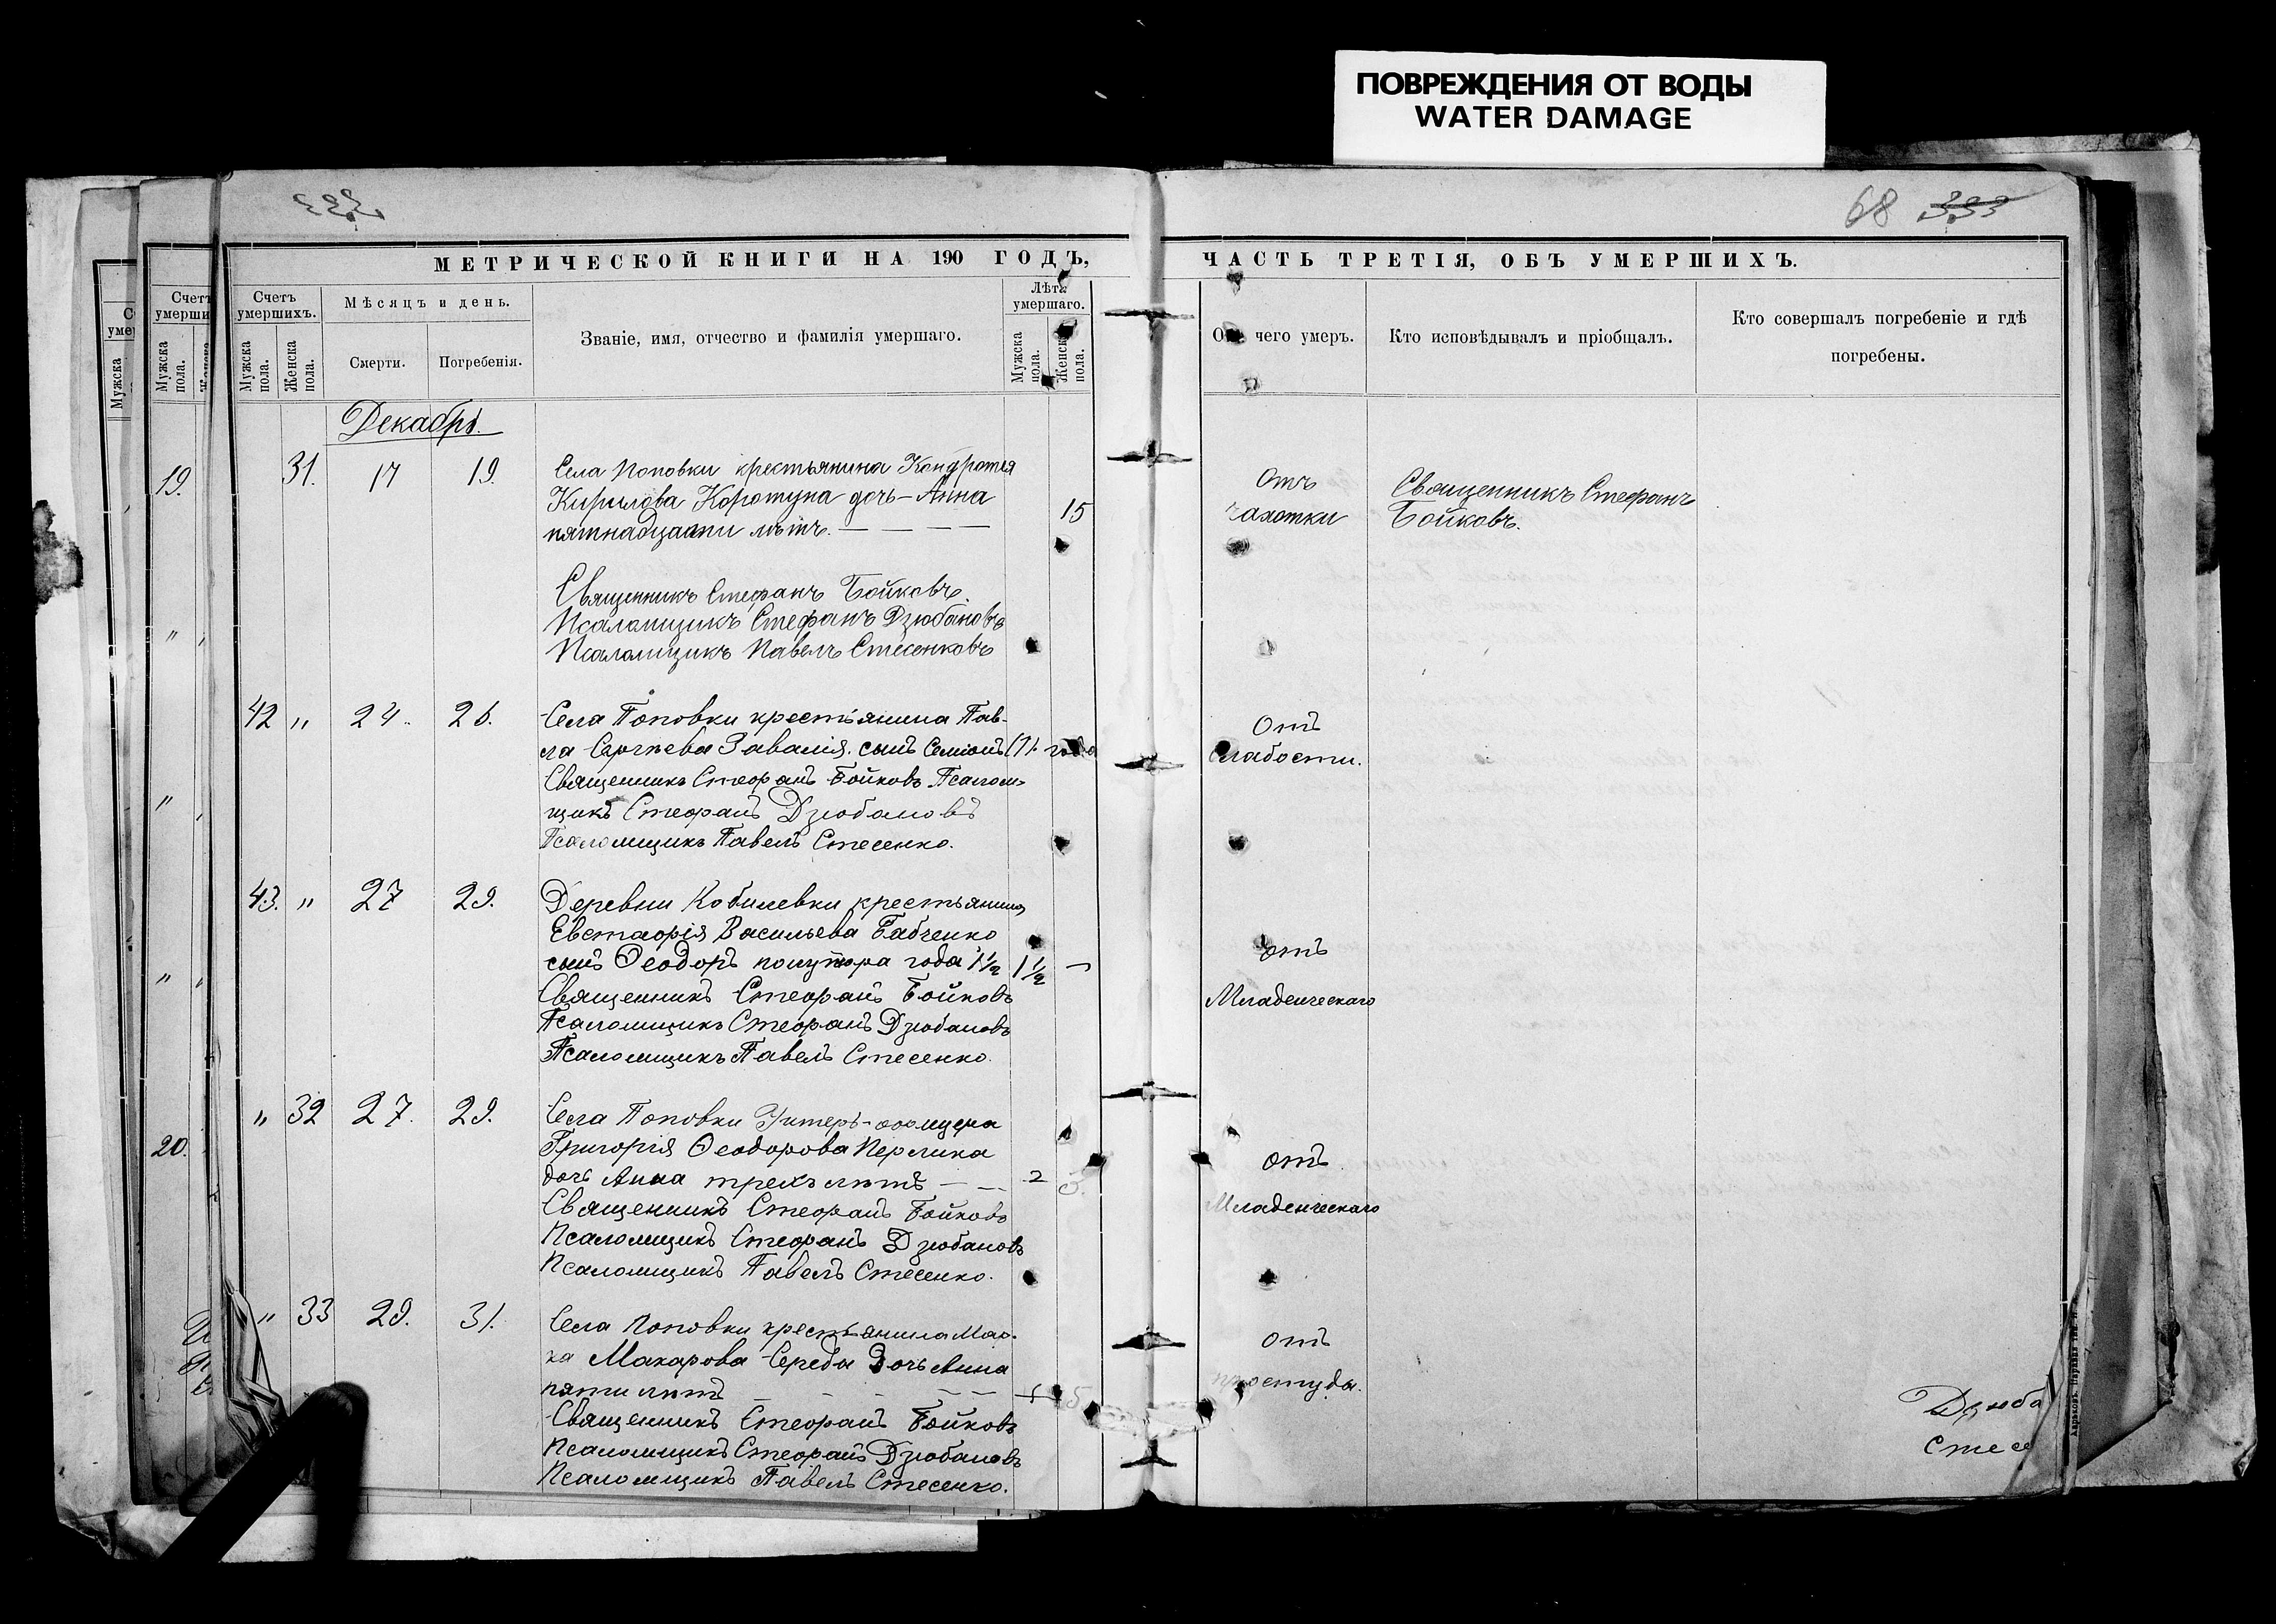 ПОВРЕЖДЕНИЯ ОТ ВОДЫ
WATER DAMAGE
68 333
МЕТРИЧЕСКОЙ КНИГИ НА 190 ГОДЪ,
ЧАСТЬ ТРЕТІЯ, ОБЪ УМЕРШИХЪ.
Счетъ умершихъ.
Мужска пола.
Женска пола.
Мѣсяцъ и день.
Смерти.
Погребенія.
Званіе, имя, отчество и фамилія умершаго.
Лѣта умершаго.
Мужска пола.
Женска пола.
Отъ чего умеръ.
Кто исповѣдывалъ и пріобщалъ.
Кто совершалъ погребеніе и гдѣ
погребены.
Декабрь.
31. 17 19. Села Поповки крестьянина Кондратія
Кирилова Коротуна дочь - Анна 15
пятнадцати лѣтъ. — — — —
Отъ
чахотки
Священникъ Стефанъ
Бойковъ.
Священникъ Стефанъ Бойковъ.
Псаломщикъ Стефанъ Дзюбановъ
Псаломщикъ Павелъ Стесенковъ
42 " 24. 26. Села Поповки крестьянина Пав-
ла Сергѣева Завалія. сынъ Семіонъ 71 года
Священникъ Стефанъ Бойковъ Псалом-
щикъ Стефанъ Дзюбановъ
Псаломщикъ Павелъ Стесенко.
Отъ
слабости.
43. " 27 29. Деревни Кобилевки крестьянина
Евстафія Васильева Бабченко
сынъ Ѳеодоръ полутора года 1½ 1½ —
Священникъ Стефанъ Бойковъ
Псаломщикъ Стефанъ Дзюбановъ
Псаломщикъ Павелъ Стесенко.
отъ
Младенческаго
" 32 27. 29. Села Поповки Унтеръ-офицера
Григорія Ѳеодорова Перлика
дочь Анна трехъ лѣтъ — — 2 3.
Священникъ Стефанъ Бойковъ
Псаломщикъ Стефанъ Дзюбановъ
Псаломщикъ Павелъ Стесенко.
отъ
Младенческаго
" 33 29. 31. Села Поповки крестьянина Мар-
ка Макарова Середа дочь Анна
пяти лѣтъ — — — — — 5
Священникъ Стефанъ Бойковъ
Псаломщикъ Стефанъ Дзюбановъ
Псаломщикъ Павелъ Стесенко.
отъ
простуды.
Дзюба
Стесе
19.
20.